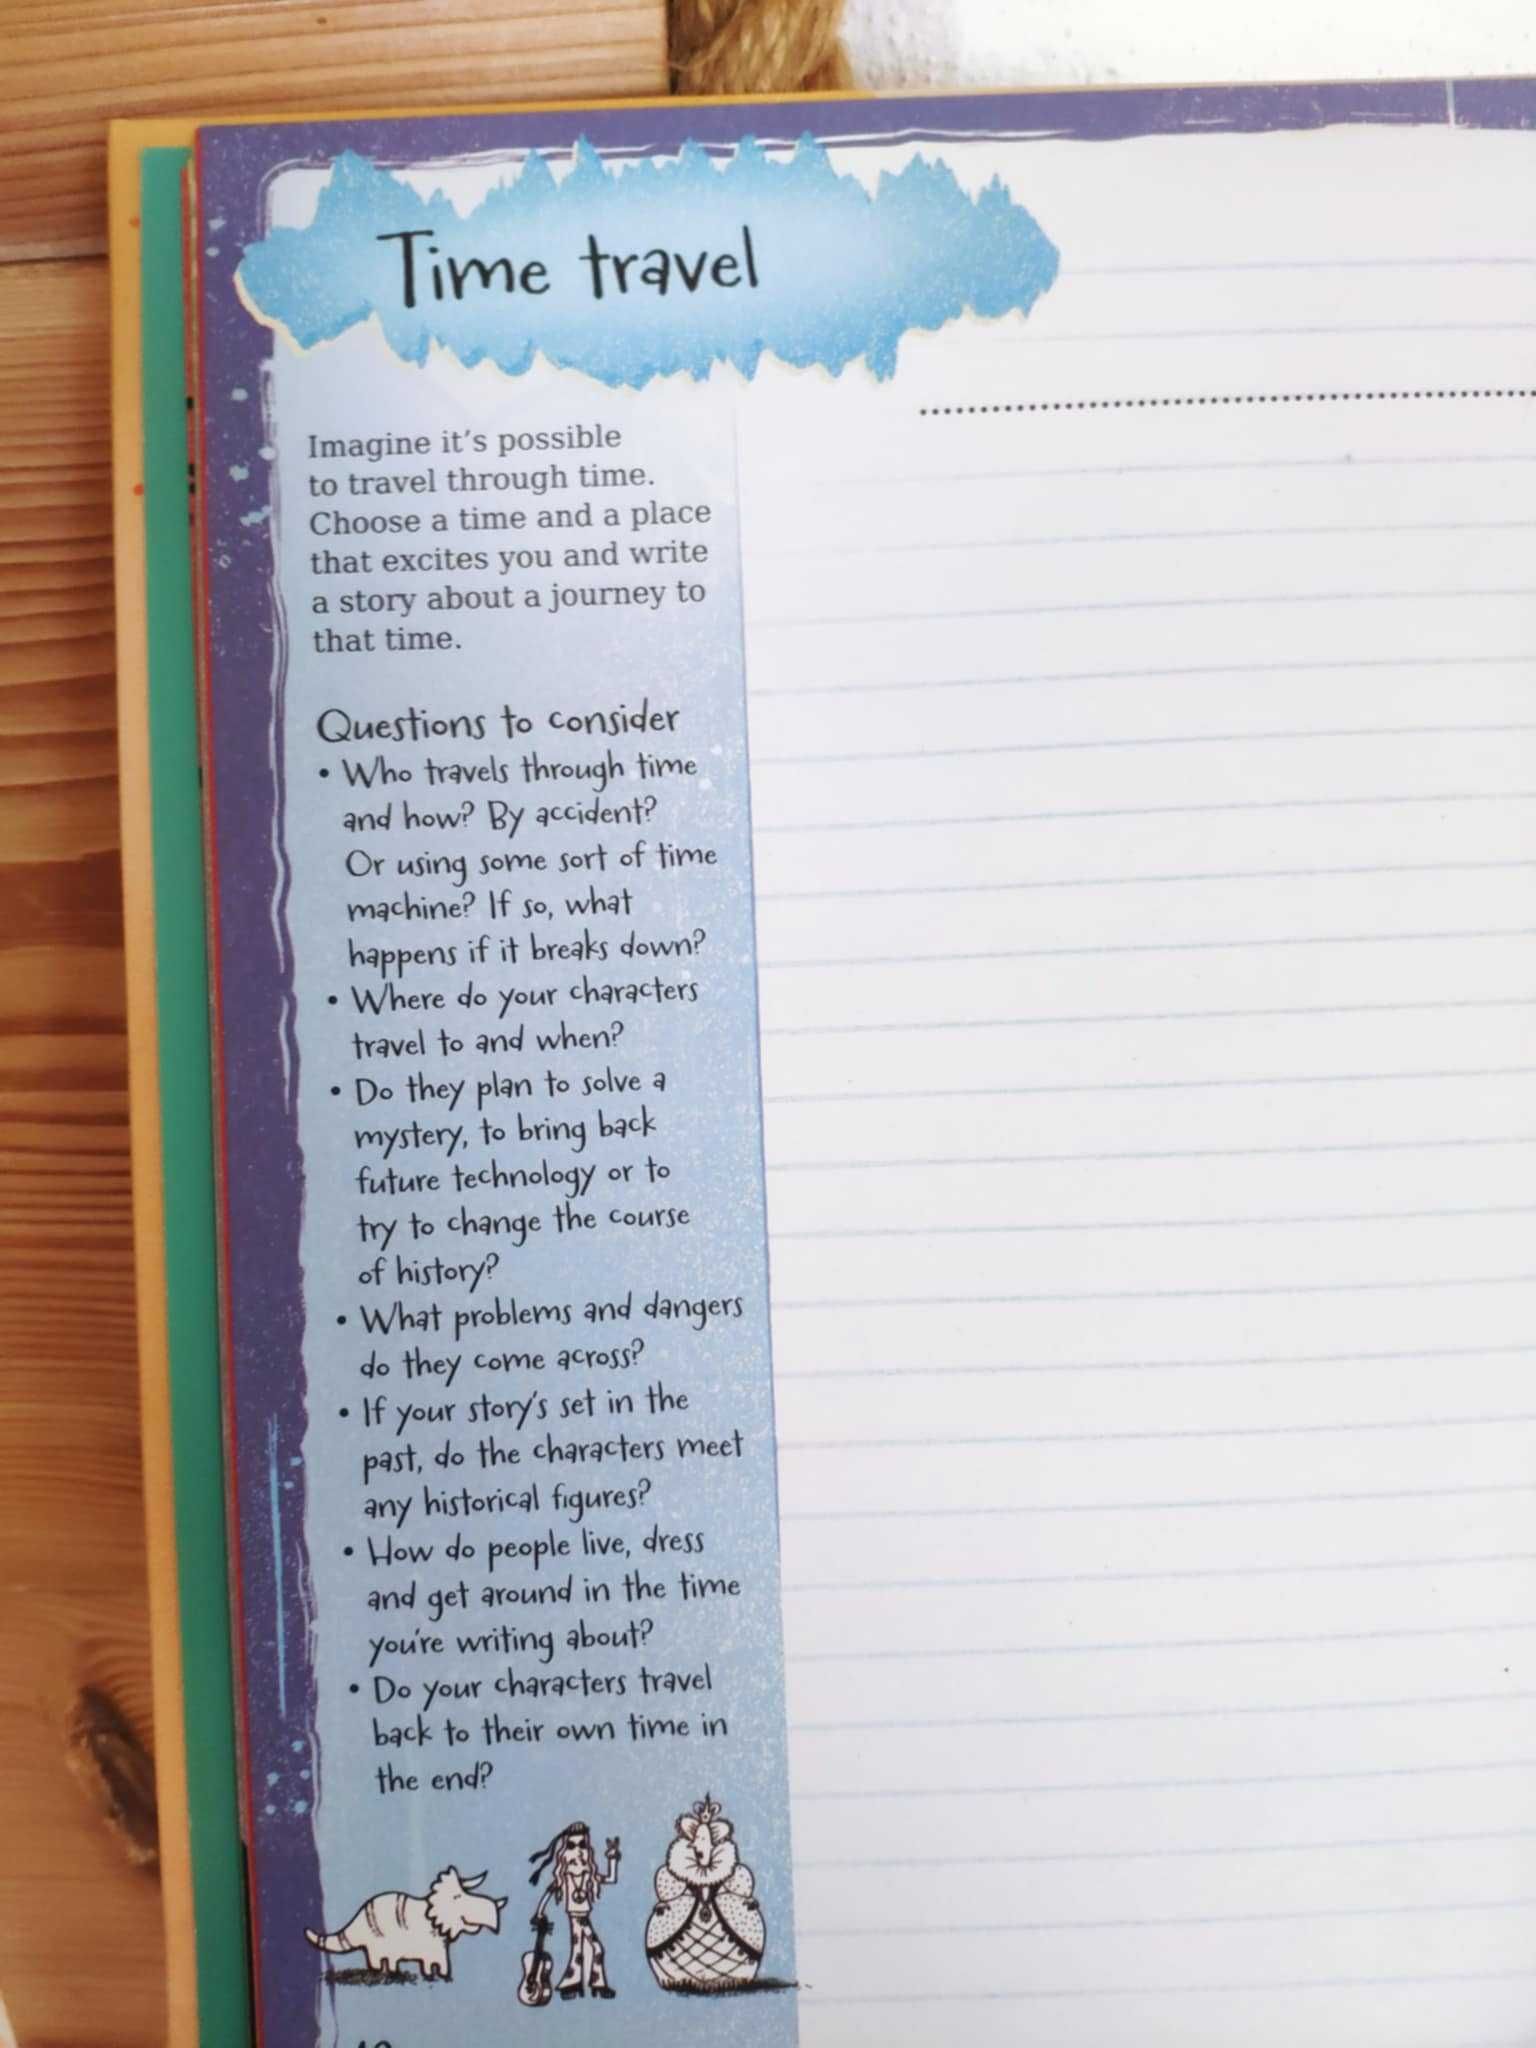 Time travel
Imagine it's possible
to travel through time.
Choose a time and a place
that excites you and write
a story about a journey to
that time.
Questions to consider
• Who travels through time
and how? By accident?
Or using some sort of time
machine? If so, what
happens if it breaks down?
• Where do your characters
travel to and when?
• Do they plan to solve a
mystery, to bring back
future technology or to
try to change the course
of history?
• What problems and dangers
do they come across?
• If your story's set in the
past, do the characters meet
any historical figures?
• How do people live, dress
and get around in the time
you're writing about?
• Do your characters travel
back to their own time in
the end?